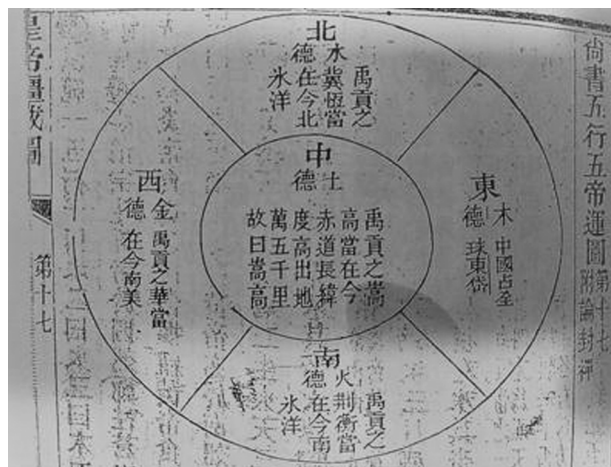 尚書五行五帝運圖第十七
附論封禪
北
水德
禹貢之
冀恆當
在今北
冰洋
東
木德
中國占全
球東岱
中
土德
禹貢之嵩
高當在今
赤道長緯
度高出地
萬五千里
故曰嵩高
西
金德
禹貢之華當
在今南美
南
火德
禹貢之
荆衡當
在今南
冰洋
皇帝疆域圖
第十七